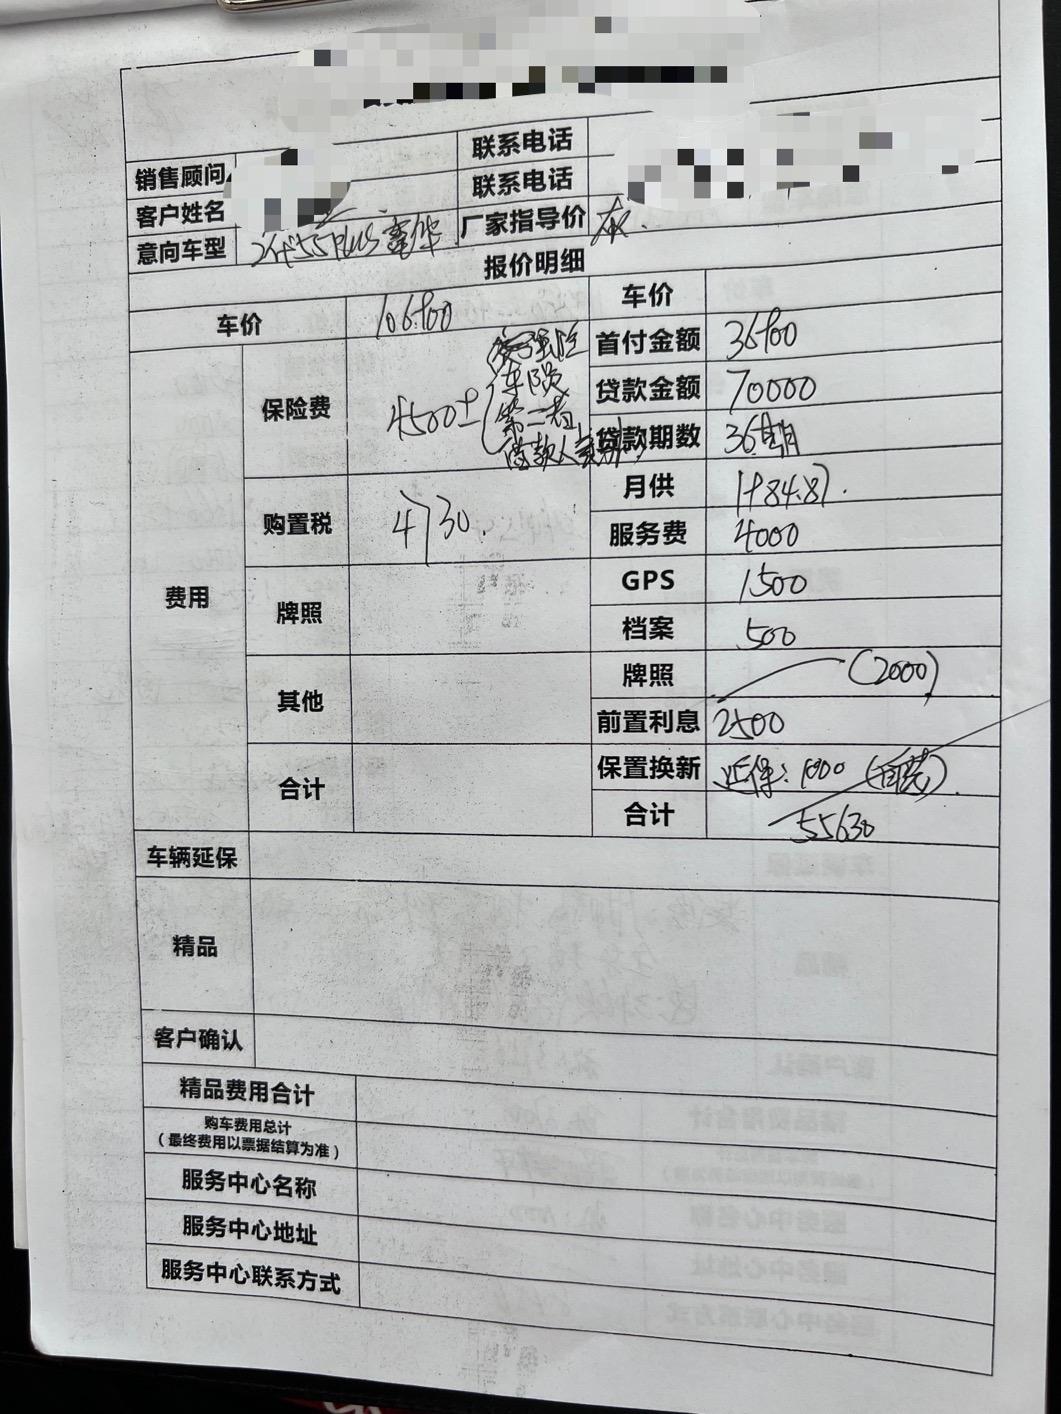 联系电话
销售顾问
联系电话
客户姓名
厂家指导价 灰.
意向车型 2代55PLUS豪华
报价明细
车价 106900
车价
首付金额 36900
费用
保险费 4500±(交强险
车损
第三者
贷款金额 70000
贷款期数 36期
月供 1984.87.
购置税 4730.
服务费 4000
GPS 1500
牌照
档案 500
牌照 (2000)
其他
前置利息 2500
保置换新 延保:1000
合计
合计 55630
车辆延保
精品
客户确认
精品费用合计
购车费用总计
(最终费用以票据结算为准)
服务中心名称
服务中心地址
服务中心联系方式